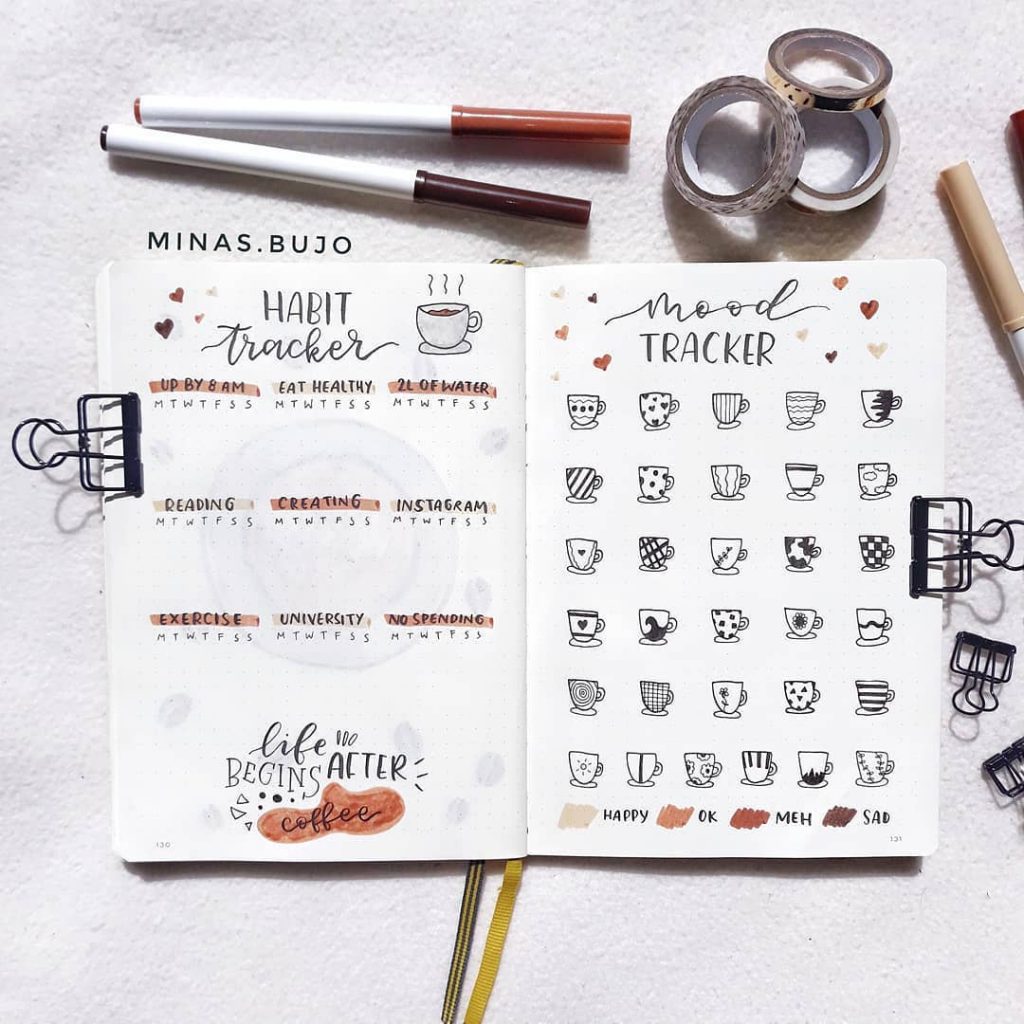 MINAS.BUJO
HABIT
tracker
UP BY 8 AM EAT HEALTHY 2L OF WATER
M T W T F S S M T W T F S S M T W T F S S
READING CREATING INSTAGRAM
M T W T F S S M T W T F S S M T W T F S S
EXERCISE UNIVERSITY NO SPENDING
M T W T F S S M T W T F S S M T W T F S S
life
BEGINS AFTER
coffee
130
mood
TRACKER
HAPPY OK MEH SAD
131